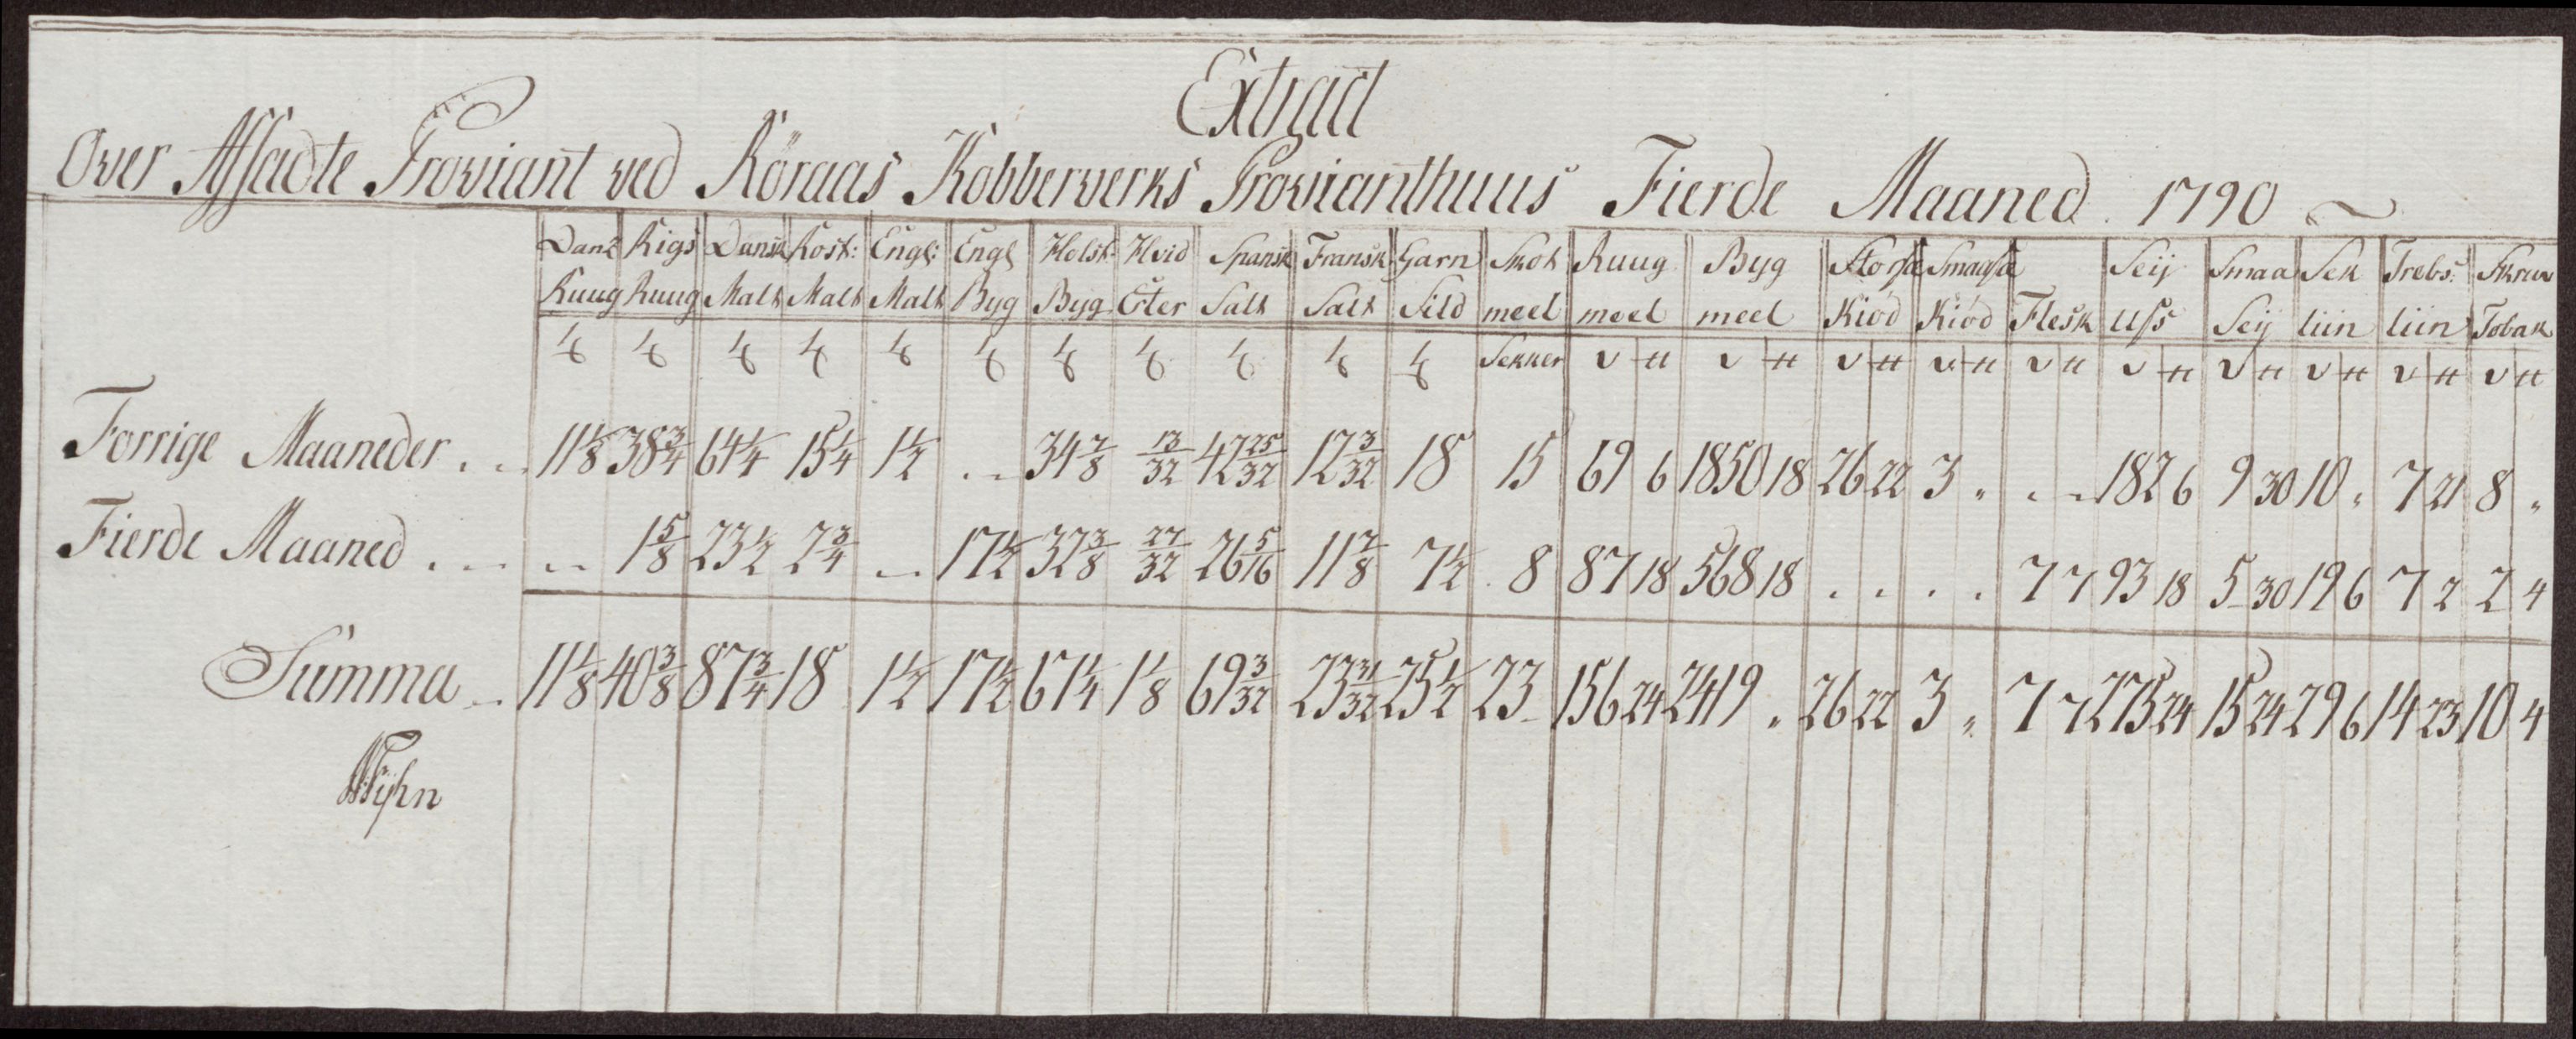 Extract
Over Afsadte Proviant ved Röraas Kobberverks Provianthuus Fierde Maaned 1790
Danz Rigs Dansk Rost: Engl: Engl Holst Hvid Spansk Fransk Garn Skot Ruug Byg Storsæ Smaasæ Seij Smaa Sek Trebs: Skrue
Ruug Ruug Malt Malt Malt Byg Byg Erter Salt Salt Sild meel meel meel Kiød Kiød Flesk Ufs Seij liin liin Tobak
Sekker
Forrige Maaneder . . . 11 1/8 38 3/4 64 1/4 15 1/4 1 1/2 . . . 34 7/8 13/32 42 25/32 12 3/32 18 15 69 6 1850 18 26 22 3 „ . . . 182 6 9 30 10 „ 7 21 8 „
Fierde Maaned . . . . . . 1 5/8 23 1/2 2 3/4 . . . 17 1/2 32 3/8 27/32 26 5/16 11 7/8 7 1/2 8 87 18 568 18 . . . . 7 7 93 18 5 30 19 6 7 2 2 4
Summa . . 11 1/8 40 3/8 87 3/4 18 1 1/2 17 1/2 67 1/4 1 1/8 69 3/32 23 31/32 25 1/2 23 156 24 2419 „ 26 22 3 „ 7 7 275 24 15 24 29 6 14 23 10 4